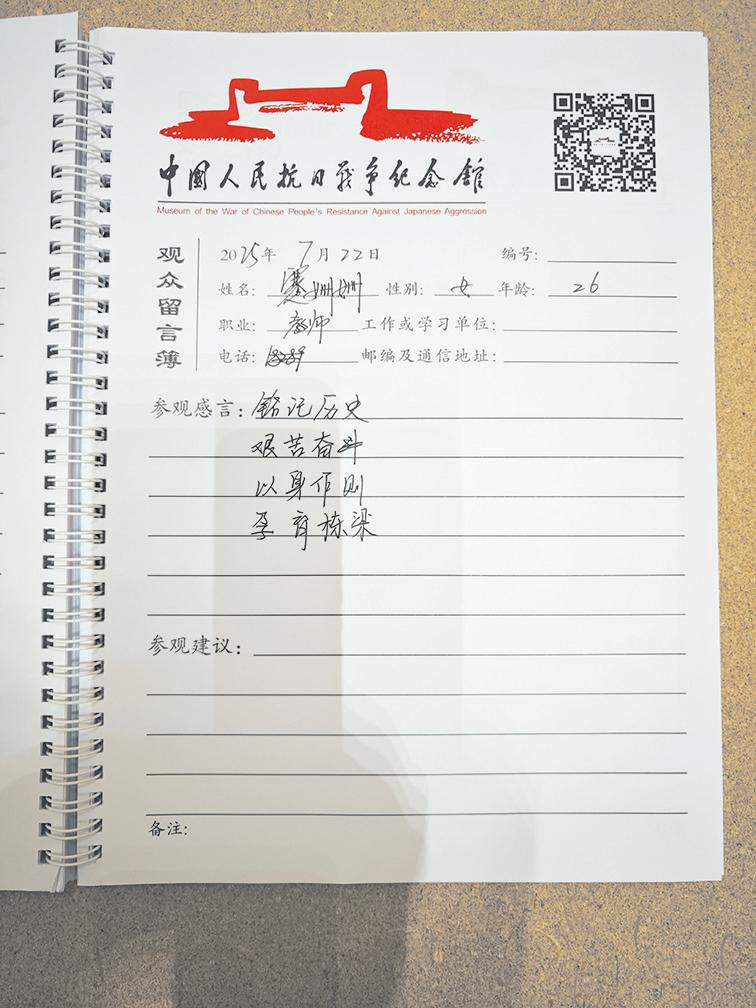 中國人民抗日戰爭纪念館
Museum of the War of Chinese People's Resistance Against Japanese Aggression
观众留言簿
2025年 7月22日 编号:
姓名: 姗姗 性别: 女 年龄: 26
职业: 教师 工作或学习单位:
电话: 邮编及通信地址:
参观感言: 铭记历史
艰苦奋斗
以身作则
孕育栋梁
参观建议:
备注: